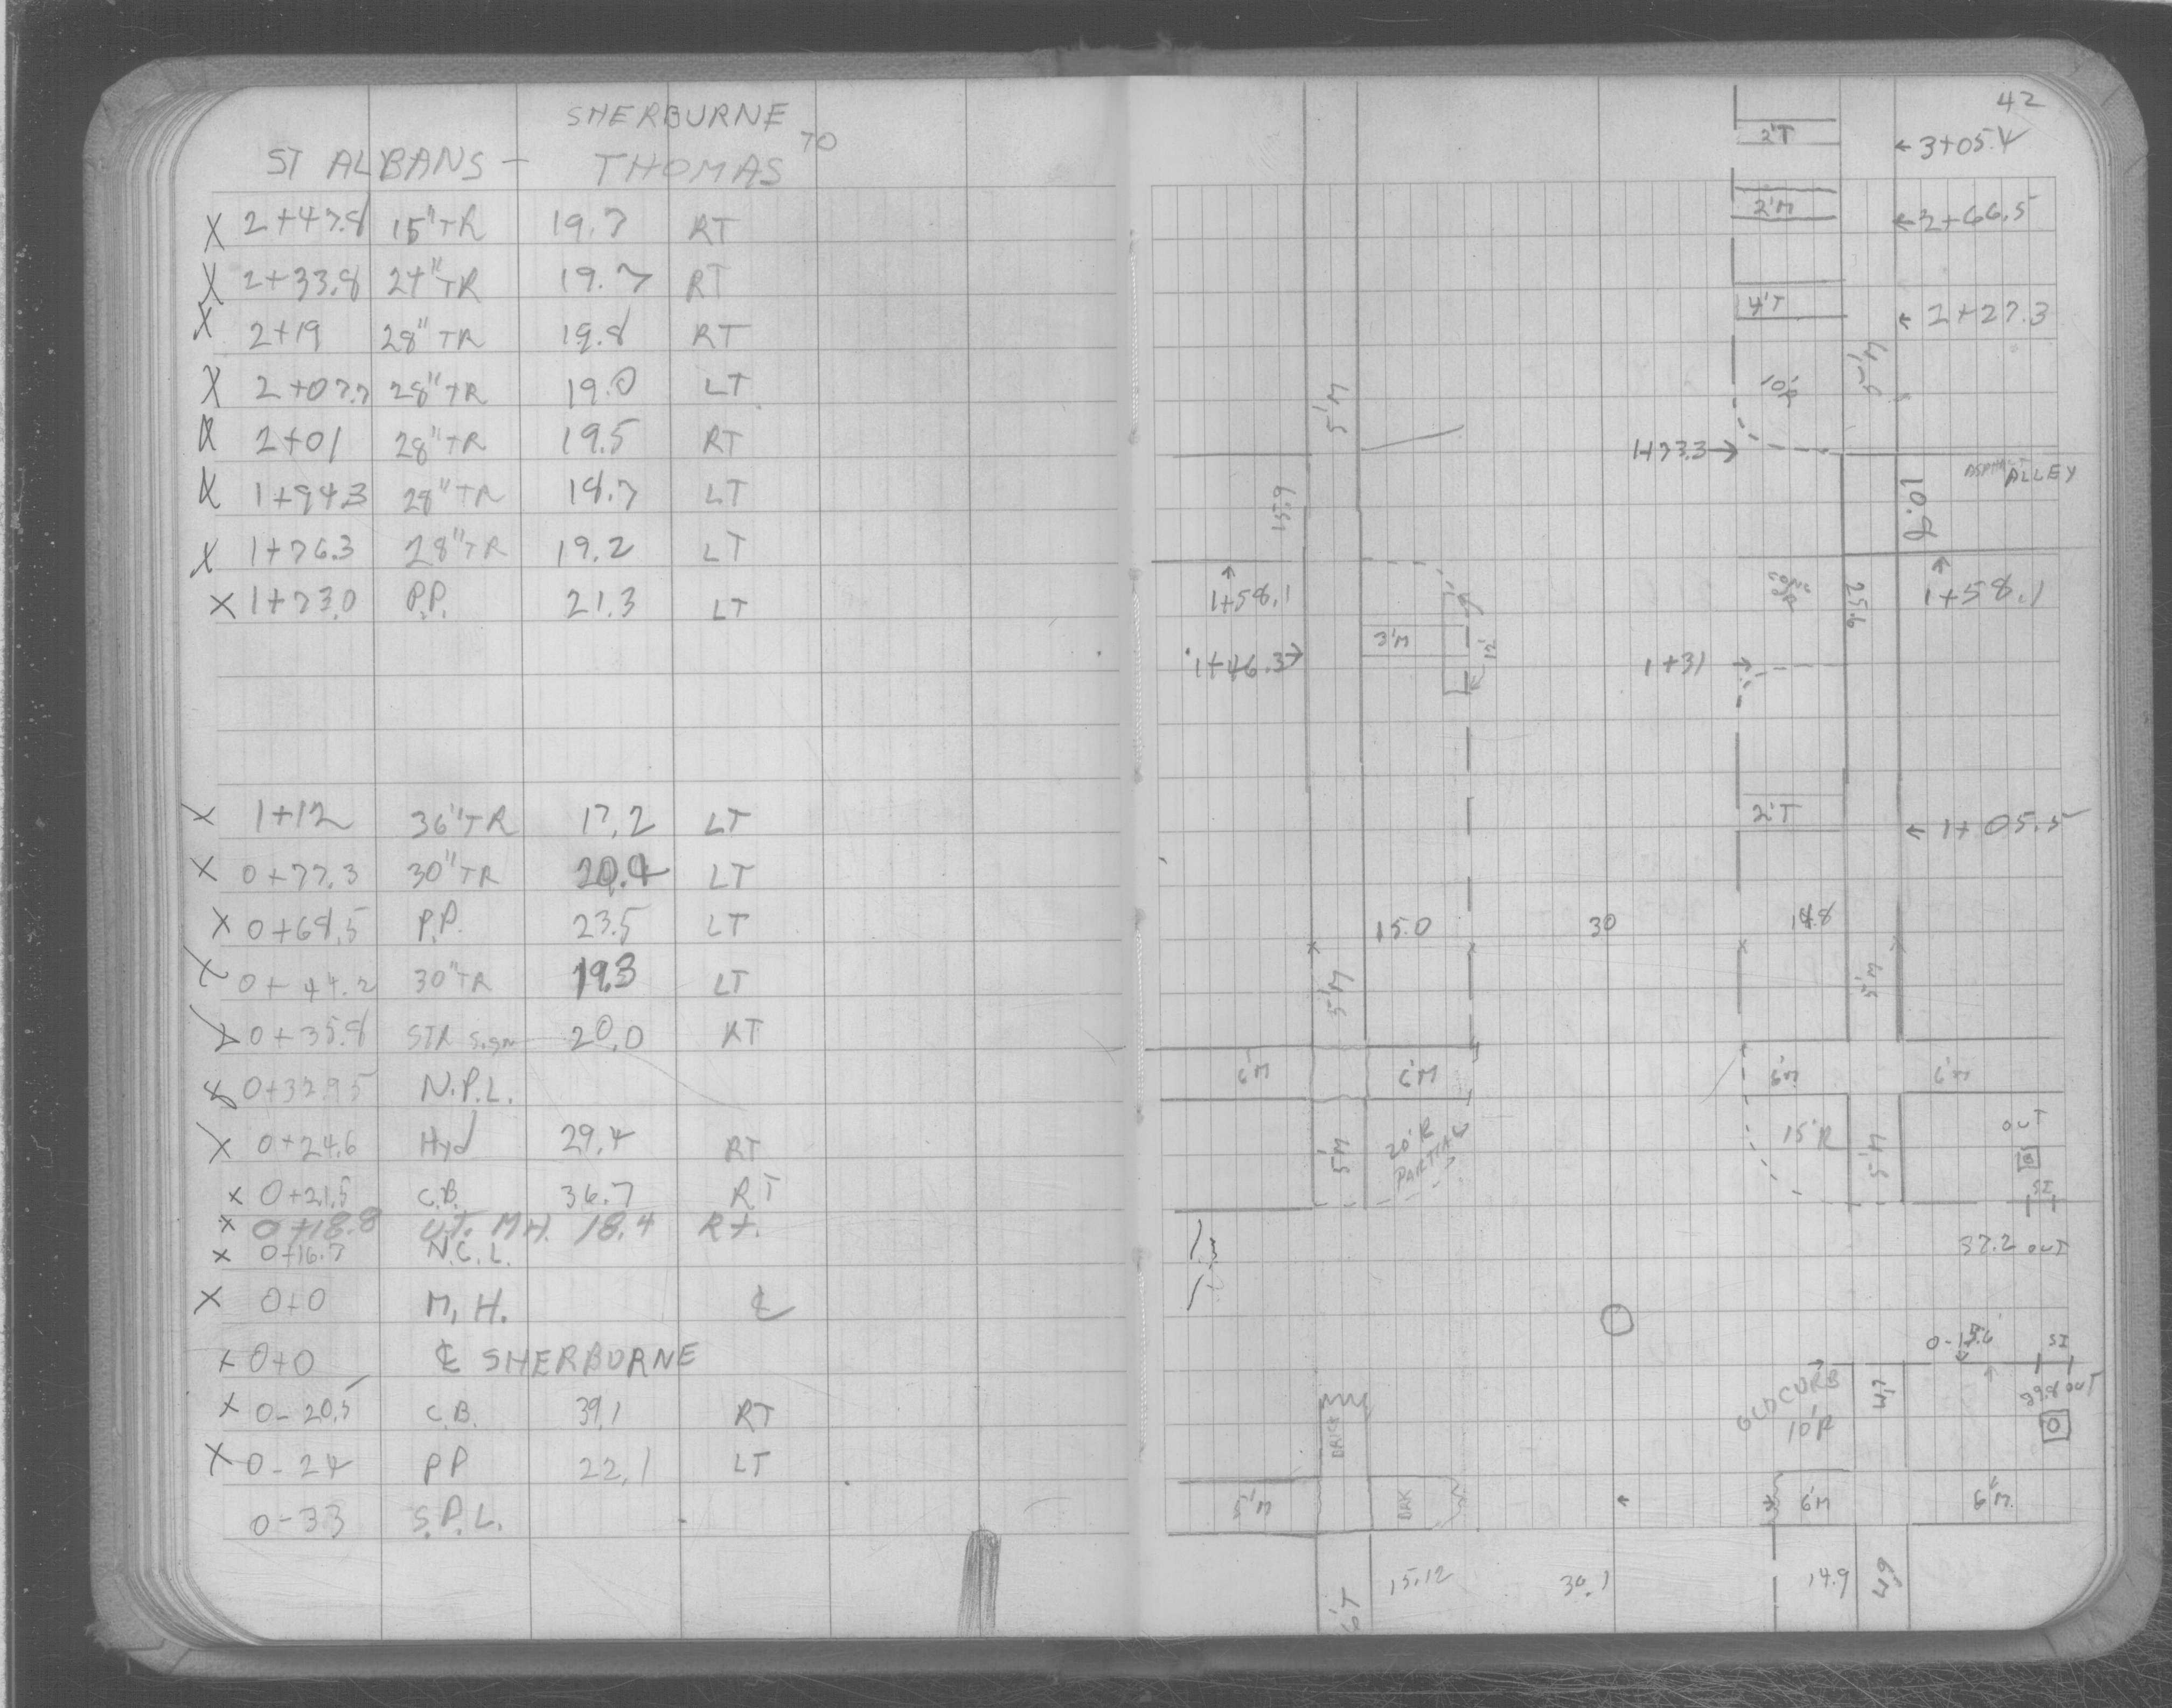 SHERBURNE TO
ST ALBANS - THOMAS
X 2+47.8 15" TR 19.7 RT
X 2+33.8 24" TR 19.7 RT
X 2+19 28" TR 19.8 RT
X 2+07.7 28" TR 19.0 LT
X 2+01 28" TR 19.5 RT
X 1+94.3 28" TR 18.7 LT
X 1+76.3 28" TR 19.2 LT
X 1+73.0 P.P. 21.3 LT
X 1+12 36" TR 17.2 LT
X 0+77.3 30" TR 20.4 LT
X 0+68.5 P.P. 23.5 LT
X 0+44.2 30" TR 19.3 LT
X 0+35.8 STR Sign 20.0 RT
X 0+32.95 N.P.L.
X 0+24.6 Hyd 29.4 RT
X 0+21.5 C.B. 36.7 RT
X 0+18.8 U.T. M.H. 18.4 Rt.
X 0+16.7 N.C.L.
X 0+0 M.H. ℄
X 0+0 ℄ SHERBURNE
X 0-20.5 C.B. 39.1 RT
X 0-24 PP 22.1 LT
0-33 S.P.L.
42
2'T ← 3+05.4
2'M
4'T ← 2+27.3
5'M 10'R 5'M
1+73.3 →
ALLEY
15.9 10.8
1+58.1 CONC 25.6 1+58.1
3'M 12'
1+46.3 → 1+31 →
2'T ← 1+05.5
15.0 30 14.8
5'M 5'M
6'M 6'M 6'M 6'M
5'M 20'R PARTIAL 15'R 5'M OUT
SI
37.2 OUT
0-15.6 SI
OLD CURB 10'R 4.7 39.8 OUT
BRICK
5'M BRK 6'M 6'M
6'T 15.12 30.1 14.9 4.9